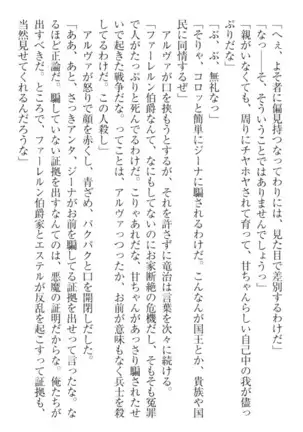 「へぇ、よそ者に偏見持つなってわりには、見た目で差別するわけだ」
「なっ――そ、そういうことではありませんでしょうっ」
「親がいなくても、周りにチヤホヤされて育って、甘ちゃんらしい自己中の我が儘っ
ぷりだな」
「ぶ、ぶ、無礼なっ」
「そりゃ、コロッと簡単にジーナに騙されるわけだ。こんなんが国王とか、貴族や国
民に同情するぜ」
アルヴァが口を挟もうとするが、それを許さずに竜治は言葉を次々に続ける。
「ファーレルン伯爵なんて、なにもしてないのにお家断絶の危機だし、そもそも冤罪
で人がたっぷりと死んでるわけだ。こりゃあれだな、甘ちゃんがあっさり騙されたせ
いで起きた戦争だな。ってことは、アルヴァっつったか、お前が意味もなく兵士を殺
してるわけだ。この人殺し」
アルヴァが怒りで顔を赤くし、青ざめ、パクパクと口を開閉しだした。
「ああ、あと、さっきアンタ、ジーナがお前を騙してる証拠を出せって言ったな。な
るほど正論だ。騙していない証拠を出すなんてのは、悪魔の証明だからな。俺たちが
出すべきだ。ところで、ファーレルン伯爵家とエステルが反乱を起こすって証拠も、
当然見せてくれるんだろうな」